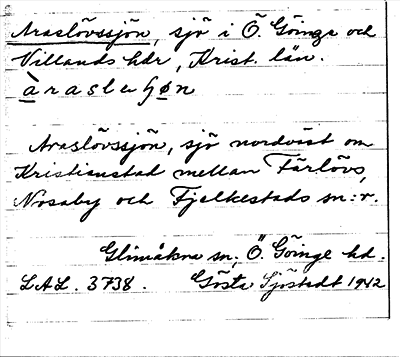 Araslövssjön, sjö i Ö. Göinge och
Villands hdr, Krist. län.
àraslevʃøn
Araslövssjön, sjö nordväst om
Kristianstad mellan Färlövs,
Nosaby och Fjelkestads sn:r.
Glimåkra sn, Ö. Göinge hd.
LAL. 3738. Gösta Sjöstedt 1942